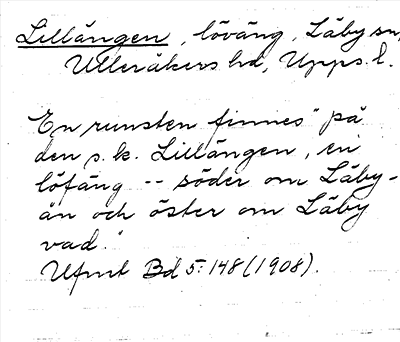 Lillängen, löväng, Läby sn,
Ulleråkers hd, Upps. l.
En runsten finnes "på
den s.k. Lillängen, en
löfäng -- söder om Läby-
ån och öster om Läby
vad."
Ufmt Bd 5: 148 (1908).